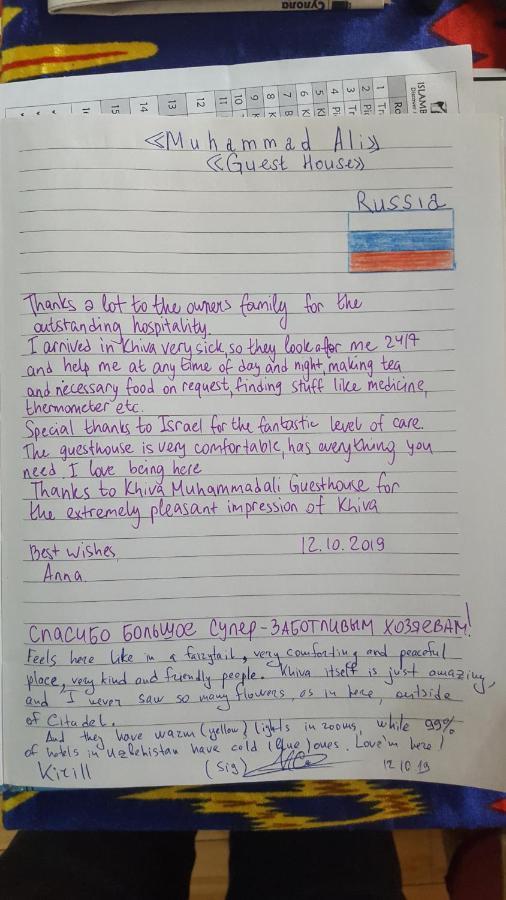 Сулола
ISLAMB
Discover
Ro
1 Tr
2 Pi
3 Tr
4 Pi
5 Kl
6 Kl
7 B
8 K
9 K
10
11
12
13
14
15
«Muhammad Ali»
«Guest House»
Russia
Thanks a lot to the owners family for the
outstanding hospitality.
I arrived in Khiva very sick, so they look afor me 24/7
and help me at any time of day and night, making tea
and necessary food on request, finding stuff like medicine,
thermometer etc.
Special thanks to Israel for the fantastic level of care.
The guesthouse is very comfortable, has everything you
need. I love being here
Thanks to Khiva Muhammadali Guesthouse for
the extremely pleasant impression of Khiva
Best wishes, 12.10.2019
Anna.
Спасибо большое супер-заботливым хозяевам!
Feels here like in a fairytail, very comforting and peaceful
place, very kind and friendly people. Khiva itself is just amazing,
and I never saw so many flowers, as in here, outside
of Citadel.
And they have warm (yellow) lights in rooms, while 99%
of hotels in Uzbekistan have cold (blue) ones. Love'm here!
Kirill (sig) 12.10.19